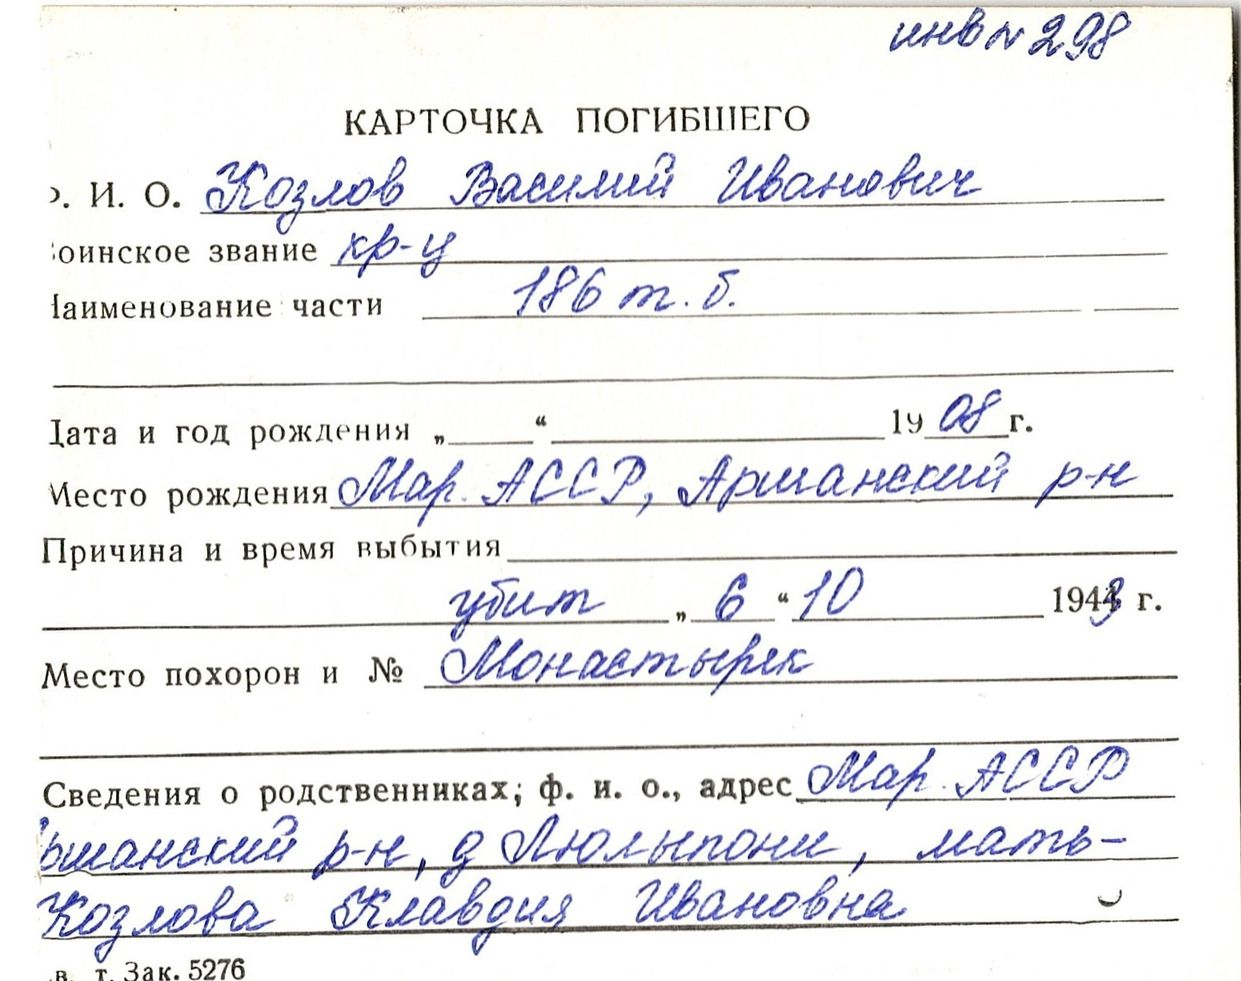 инв № 298
КАРТОЧКА ПОГИБШЕГО
. И. О. Козлов Василий Иванович
оинское звание кр-ц
Наименование части 186 т. б.
Дата и год рождения „ “ 1908 г.
Место рождения Мар. АССР, Аршанский р-н
Причина и время выбытия
убит „ 6 “ 10 1943 г.
Место похорон и № Монастырек
Сведения о родственниках; ф. и. о., адрес Мар. АССР
ршанский р-н, д Люлыпони, мать-
Козлова Клавдия Ивановна
в. т. Зак. 5276